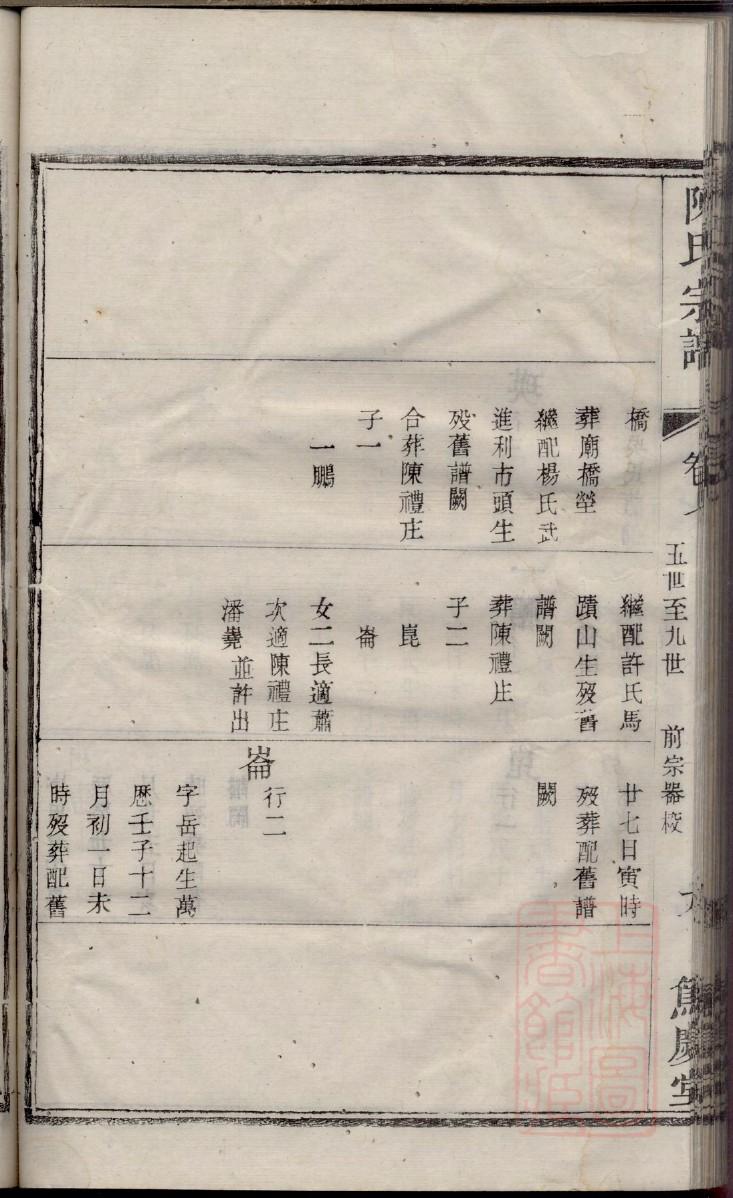 陳氏宗譜
五世至九世 前宗器校
橋
葬廟橋塋
繼配楊氏武
進利市頭生
歿舊譜闕
合葬陳禮庄
子一
一鵬
繼配許氏馬
蹟山生歿舊
譜闕
葬陳禮庄
子二
崑
崙
女二長適蕭
次適陳禮庄
潘堯並許出
廿七日寅時
歿葬配舊譜
闕
崙行二
字岳起生萬
厯壬子十二
月初一日未
時歿葬配舊
上海圖
書館藏